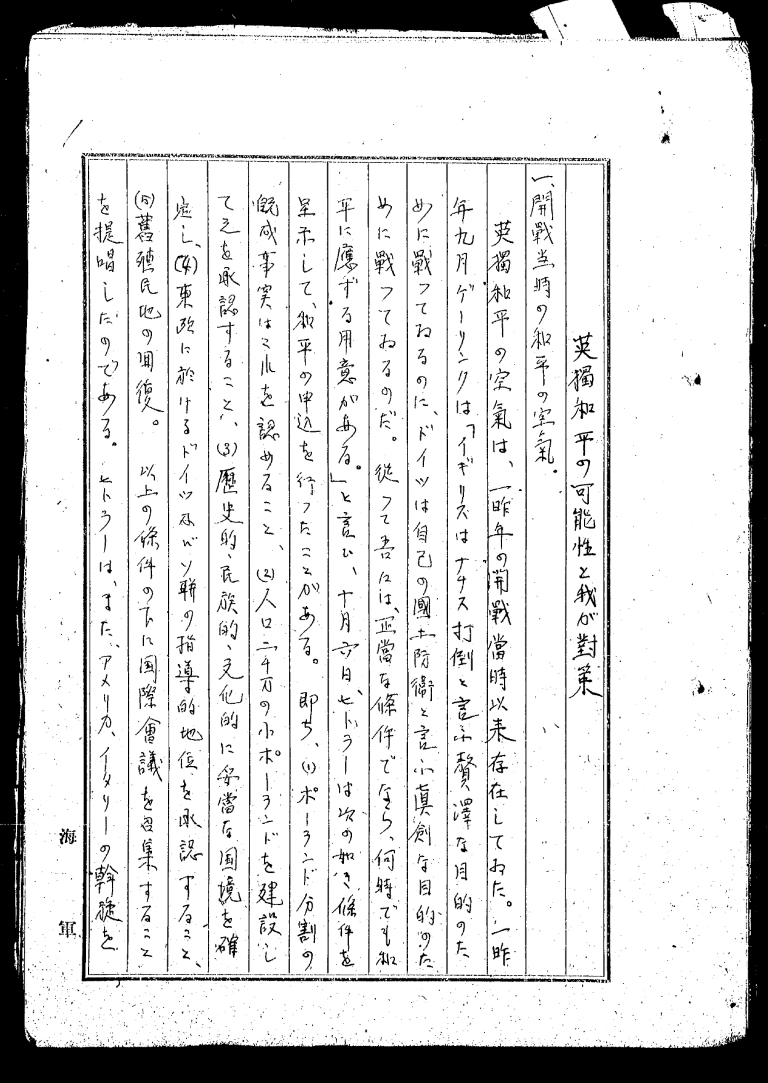 英獨和平の可能性と我が對策
一、開戰当時の和平の空氣。
英獨和平の空氣は、一昨年の開戰當時以来存在してゐた。一昨
年九月ゲーリングは「イギリスはナチス打倒と言ふ贅澤な目的のた
めに戰つてゐるのに、ドイツは自己の國土防衛と言ふ眞劍な目的のた
めに戰つてゐるのだ。從つて吾々は、正當な條件でなら、何時でも和
平に應ずる用意がある。」と言ひ、十月六日、ヒトラーは次の如き條件を
呈示して、和平の申込を行つたことがある。即ち、(1)ポーランド分割の
既成事実はこれを認めること、(2)人口二千万の小ポーランドを建設し
て之を承認すること、(3)歴史的、民族的、文化的に妥當な国境を確
定し、(4)東欧に於けるドイツ及ビソ聯の指導的地位を承認すること、
(5)舊殖民地の回復。以上の條件の下に国際會議を召集すること
を提唱したのである。ヒトラーは、また、アメリカ、イタリーの斡旋を
海軍